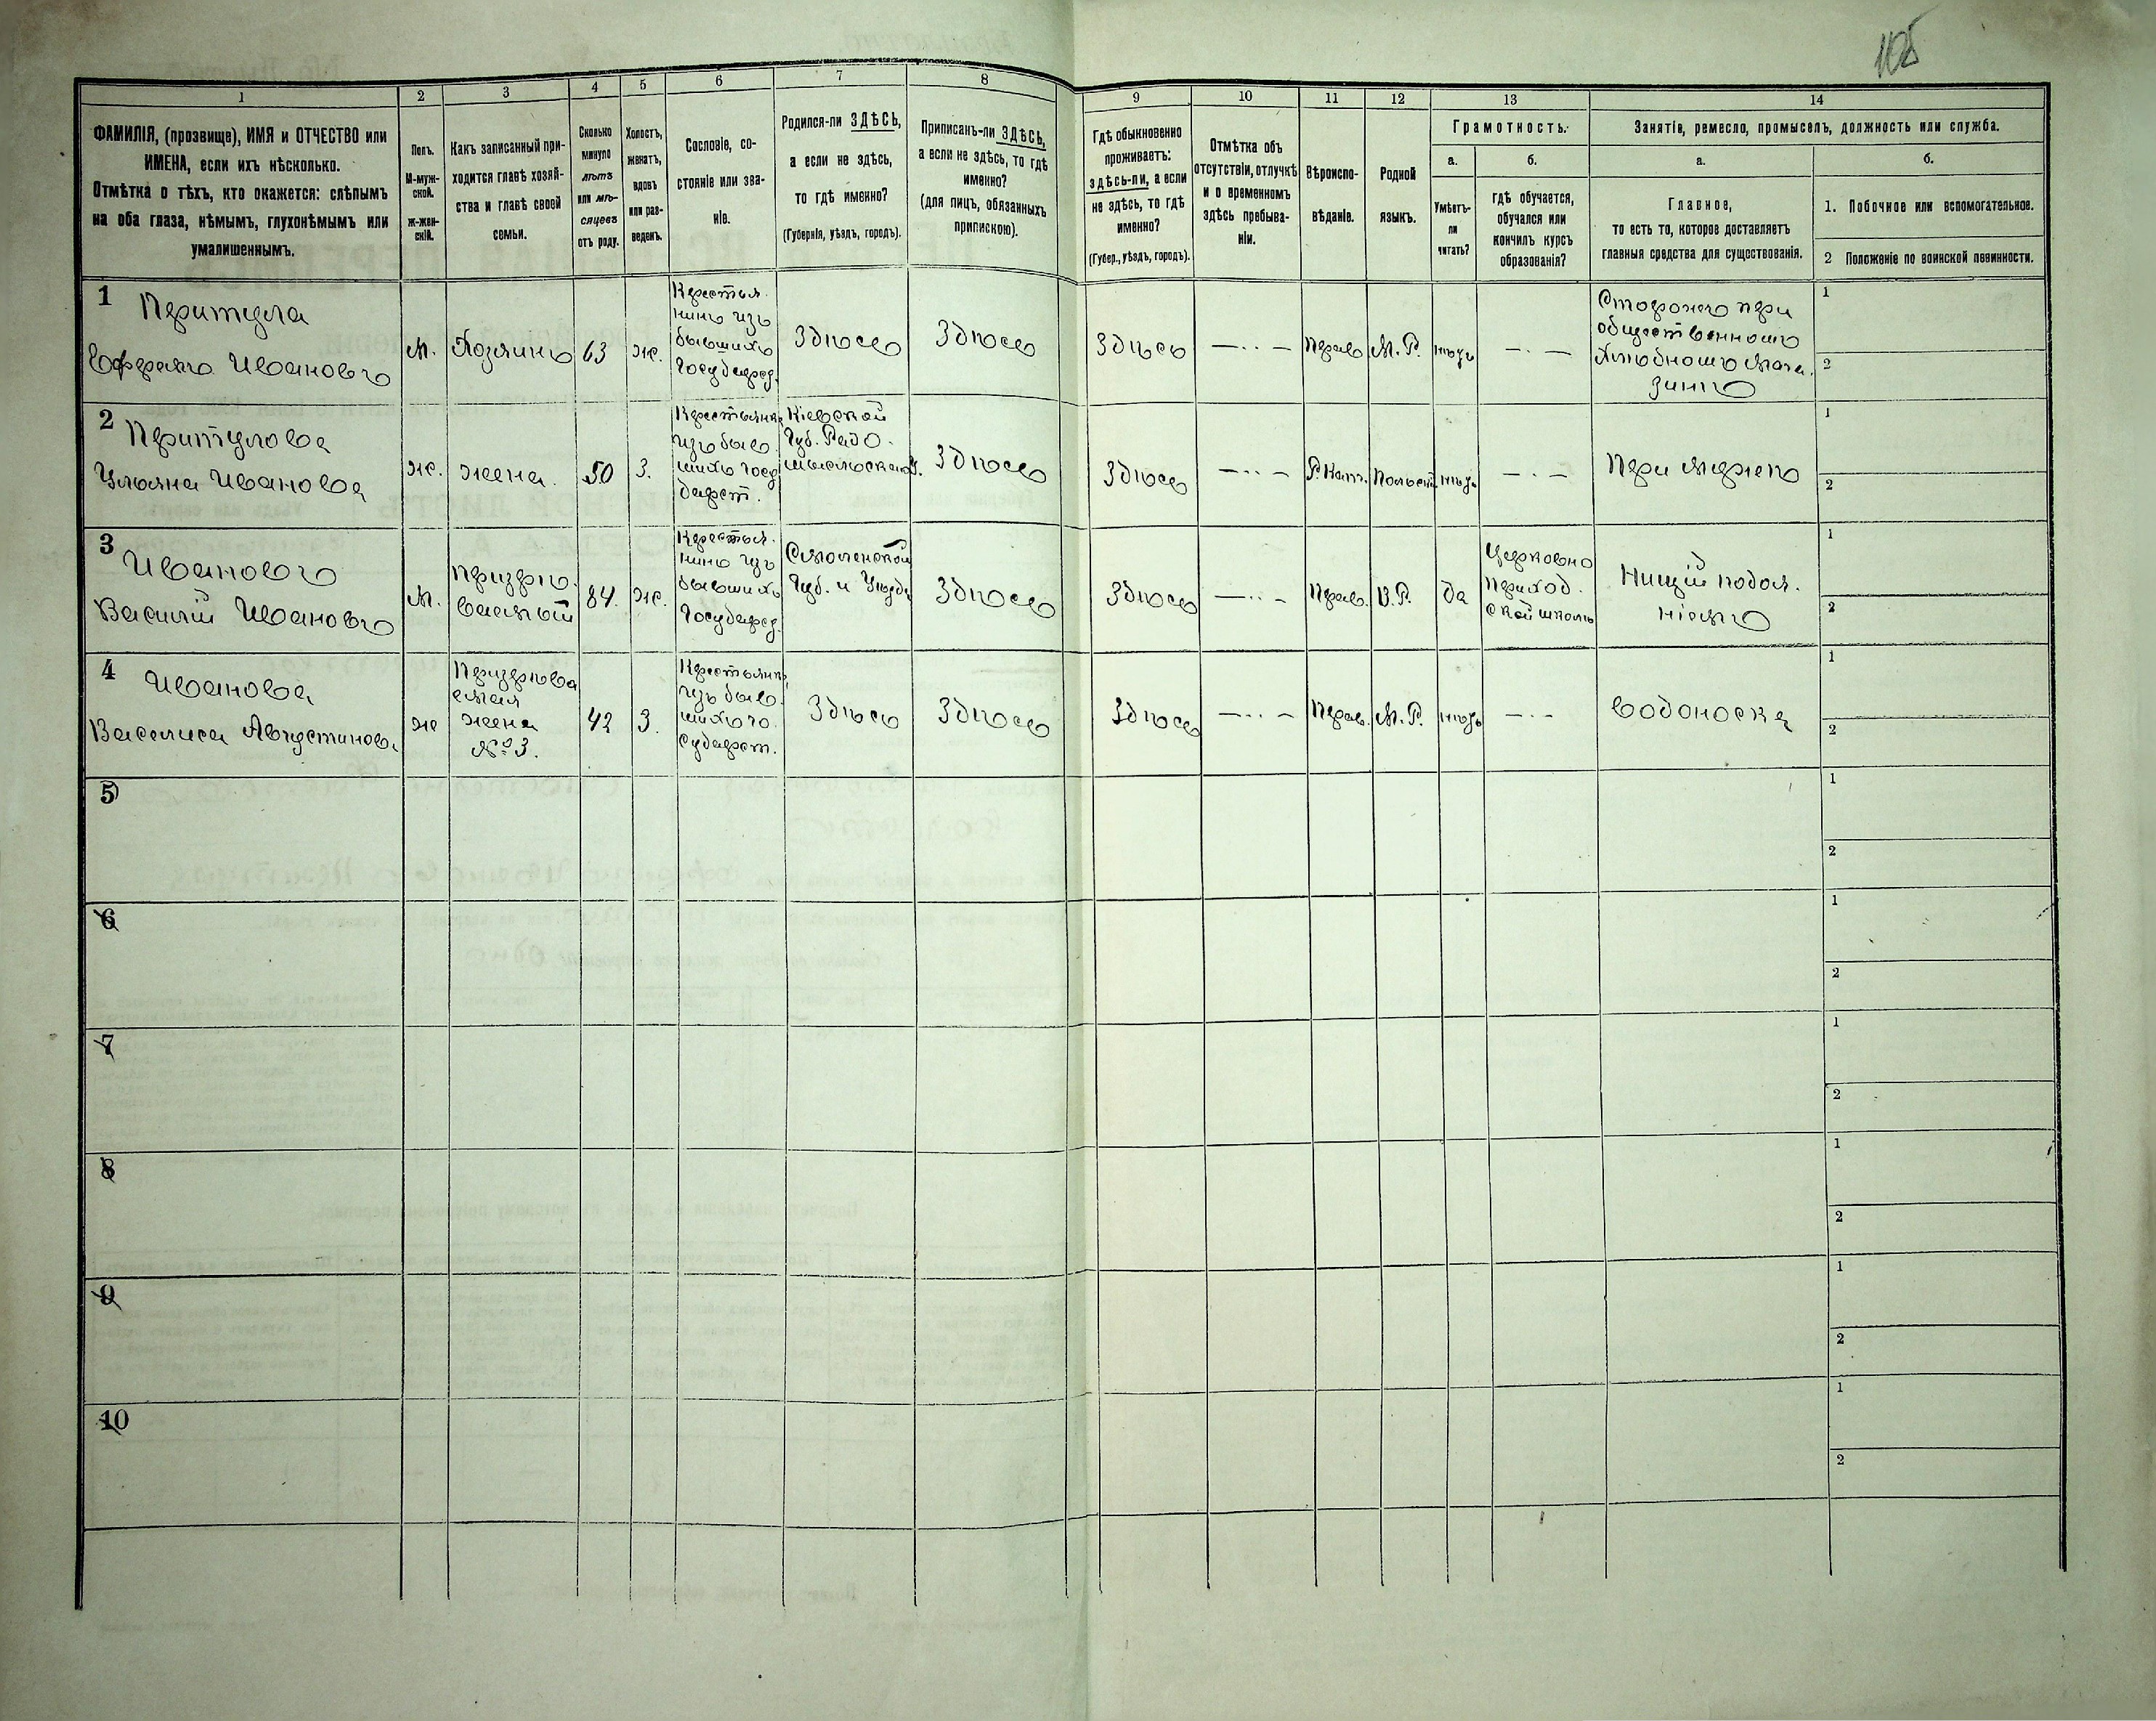 105
1
2
3
4
5
6
7
8
9
10
11
12
13
14
ФАМИЛІЯ, (прозвище), ИМЯ и ОТЧЕСТВО или
ИМЕНА, если ихъ нѣсколько.
Отмѣтка о тѣхъ, кто окажется: слѣпымъ
на оба глаза, нѣмымъ, глухонѣмымъ или
умалишеннымъ.
Полъ.
М-муж-
ской.
Ж-жен-
скій.
Какъ записанный при-
ходится главѣ хозяй-
ства и главѣ своей
семьи.
Сколько
минуло
лѣтъ
или мѣ-
сяцевъ
отъ роду.
Холостъ,
женатъ,
вдовъ
или раз-
веденъ.
Сословіе, со-
стояніе или зва-
ніе.
Родился-ли ЗДѢСЬ,
а если не здѣсь,
то гдѣ именно?
(Губернія, уѣздъ, городъ).
Приписанъ-ли ЗДѢСЬ,
а если не здѣсь, то гдѣ
именно?
(для лицъ, обязанныхъ
припискою).
Гдѣ обыкновенно
проживаетъ:
здѣсь-ли, а если
не здѣсь, то гдѣ
именно?
(Губер., уѣздъ, городъ).
Отмѣтка объ
отсутствіи, отлучкѣ
и о временномъ
здѣсь пребыва-
ніи.
Вѣроиспо-
вѣданіе.
Родной
языкъ.
Грамотность.
а.
Умѣетъ-
ли
читать?
б.
гдѣ обучается,
обучался или
кончилъ курсъ
образованія?
Занятіе, ремесло, промыселъ, должность или служба.
а.
Главное,
то есть то, которое доставляетъ
главныя средства для существованія.
б.
1. Побочное или вспомогательное.
2 Положеніе по воинской повинности.
1
Притула
Ефремъ Ивановъ
М.
Хозяинъ
63
Ж.
Крестья-
нинъ изъ
бывшихъ
Государ.
Здѣсь
Здѣсь
Здѣсь
—··—
Прав.
М. Р.
нѣтъ
—·—
Сторожъ при
общественномъ
Хлѣбномъ мага-
зинѣ
1
2
2
Притулова
Ульяна Иванова
Ж.
жена.
50
З.
Крестьянка
изъ быв-
шихъ госу-
дарст.
Кіевской
Губ. Радо-
мысльскаго У.
Здѣсь
Здѣсь
—··—
Р. Кат.
Польскій
нѣтъ
—·—
При мужѣ
1
2
3
Ивановъ
Василій Ивановъ
М.
Призрѣ-
ваемый
84.
Ж.
Крестья-
нинъ изъ
бывшихъ
Государ.
Смоленской
Губ. и Уѣзда
Здѣсь
Здѣсь
—··—
Прав.
В. Р.
да
Церковно
приход-
ской школѣ
Нищій подая-
ніемъ
1
2
4
Иванова
Василиса Августинова
Ж
Призрѣва-
емая
жена
№ 3.
42
З.
Крестьянка
изъ быв-
шихъ го-
сударст.
Здѣсь
Здѣсь
Здѣсь
—··—
Прав.
М. Р.
нѣтъ
—·—
водоноска
1
2
5
1
2
6
1
2
7
1
2
8
1
2
9
1
2
10
1
2